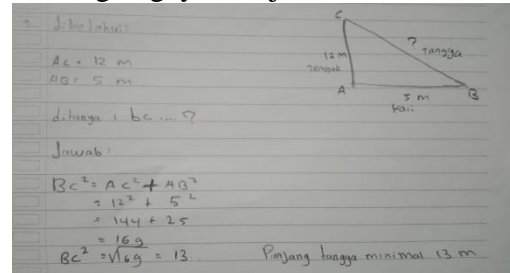 1 diketahui:
AC = 12 m
AB = 5 m
ditanya : bc .... ?
Jawab:
BC² = AC² + AB²
= 12² + 5²
= 144 + 25
= 169
BC² = √169 = 13
Panjang tangga minimal 13 m
C
?
tangga
12 m
Tembok
A
5 m
B